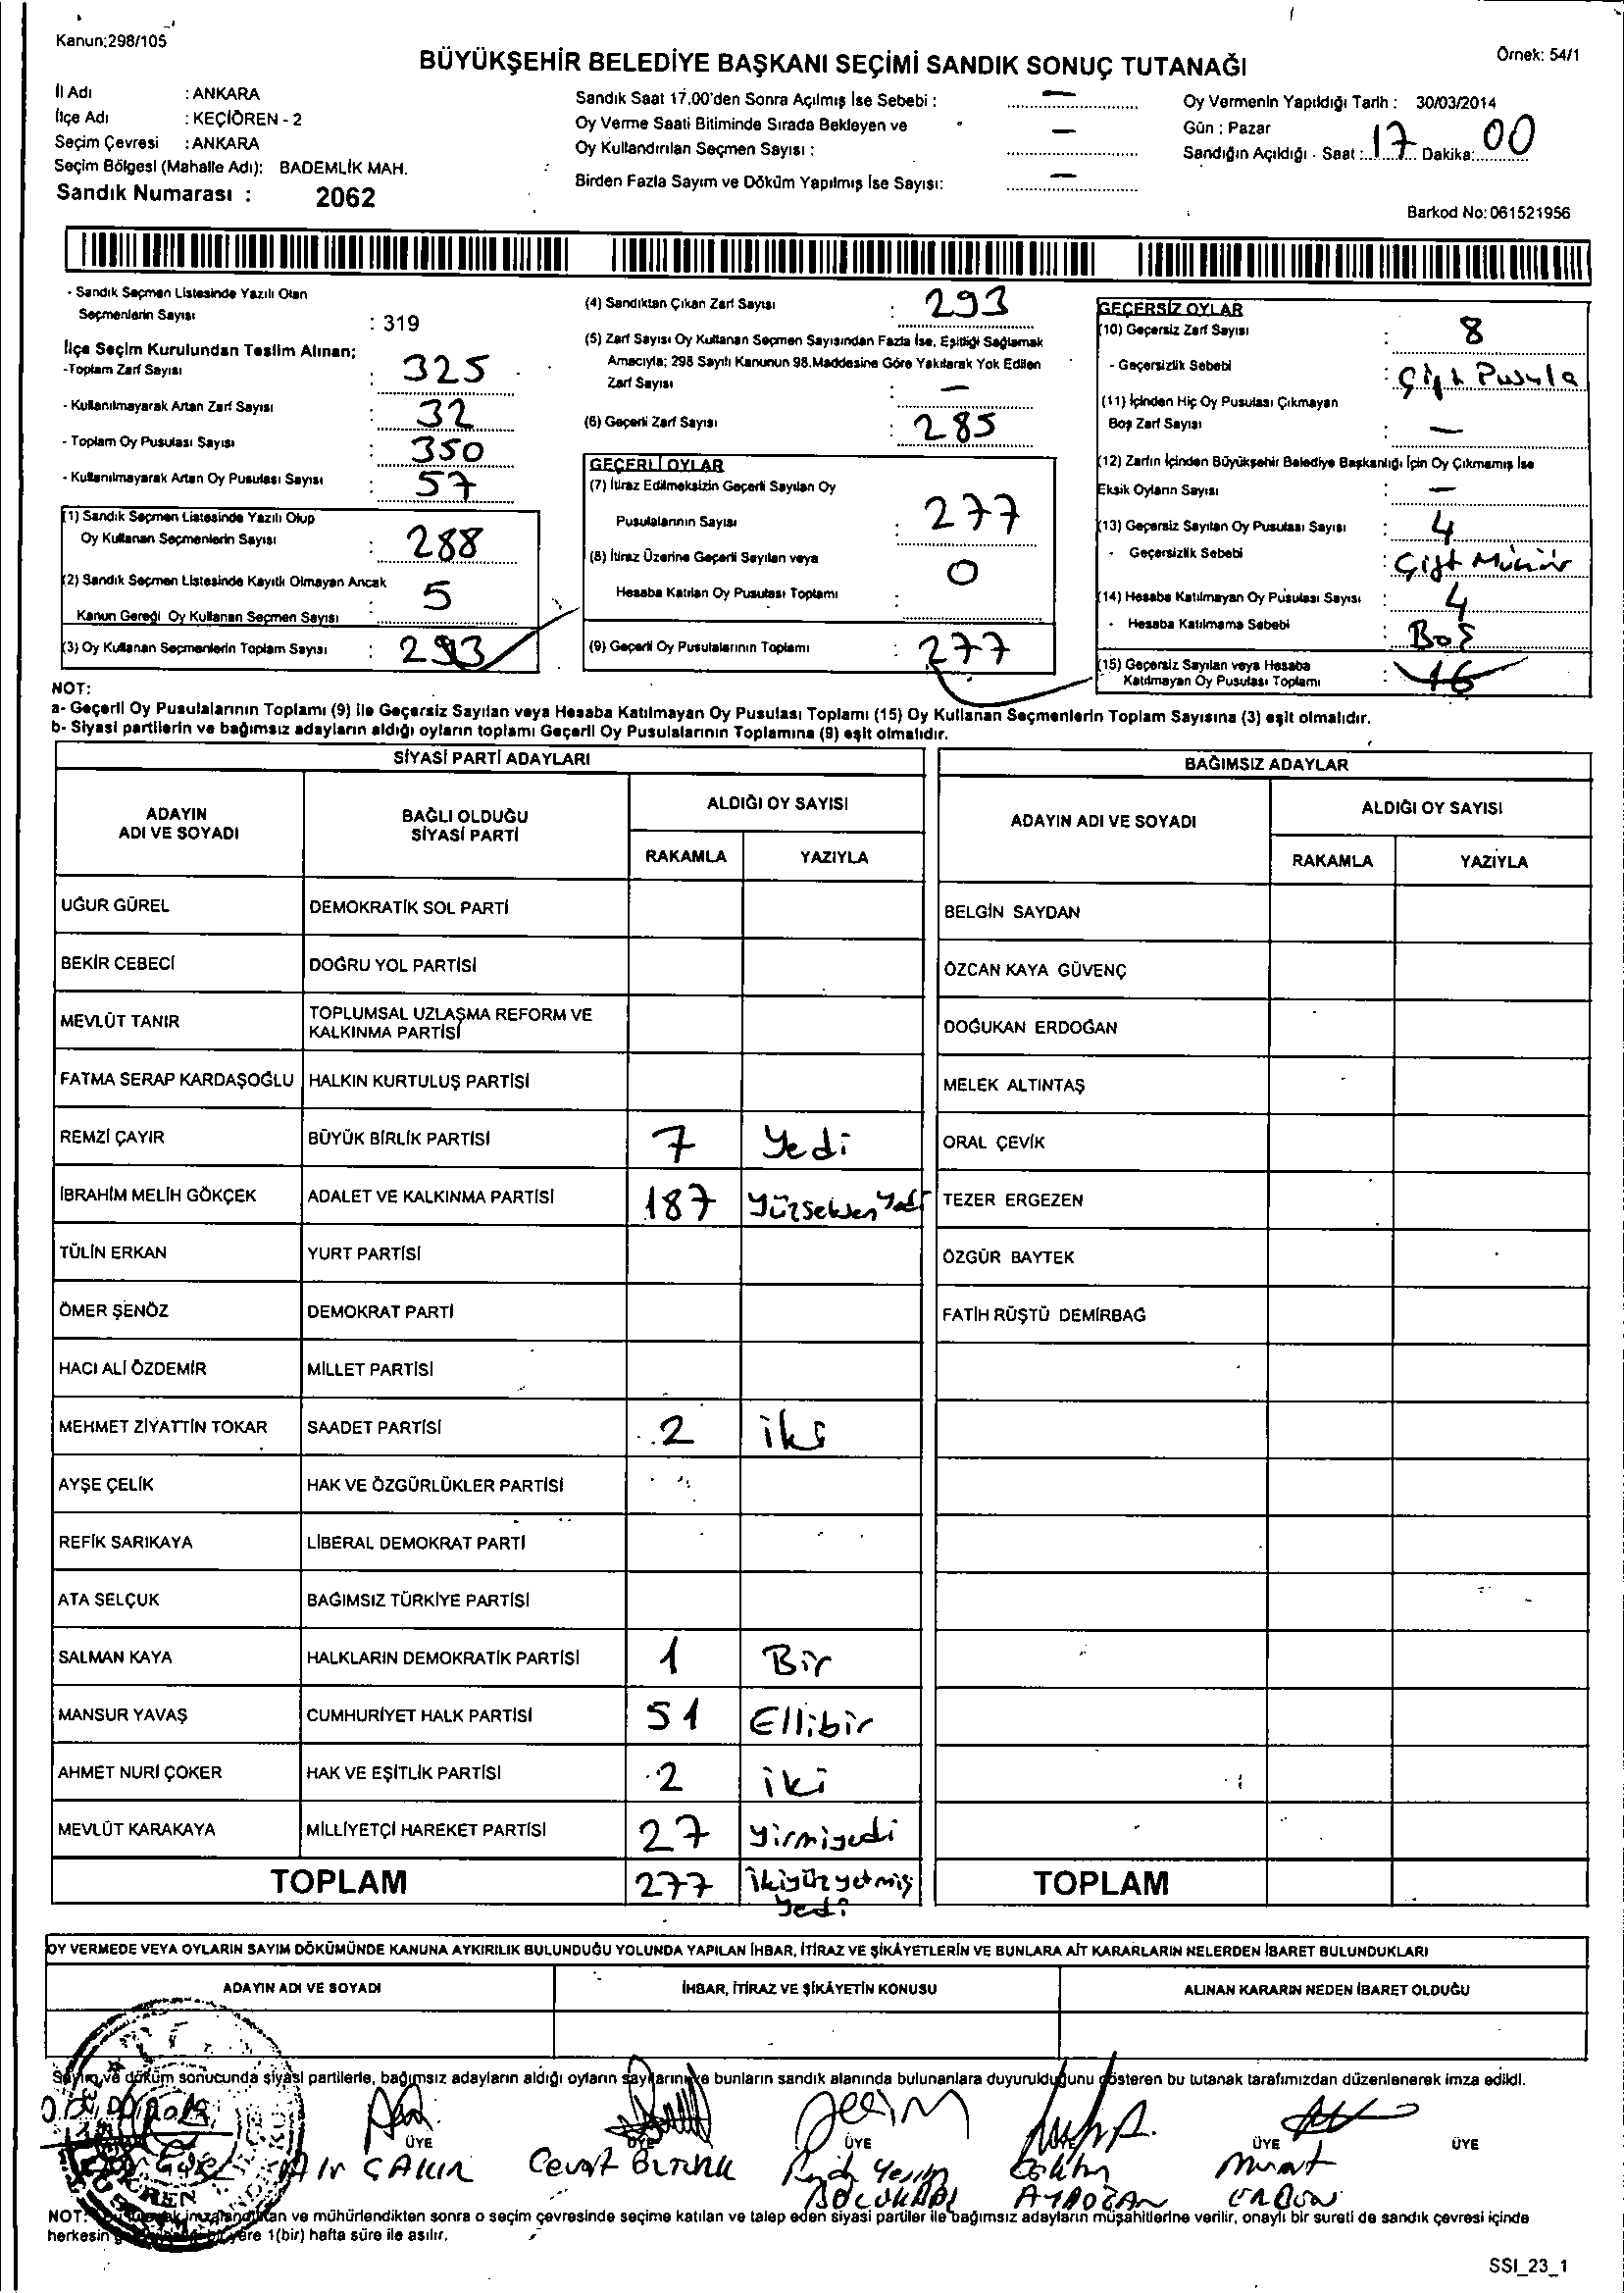 Kanun:298/105
Örnek: 54/1
BÜYÜKŞEHİR BELEDİYE BAŞKANI SEÇİMİ SANDIK SONUÇ TUTANAĞI
İl Adı : ANKARA
İlçe Adı : KEÇİÖREN - 2
Seçim Çevresi : ANKARA
Seçim Bölgesi (Mahalle Adı): BADEMLİK MAH.
Sandık Numarası : 2062
Sandık Saat 17.00'den Sonra Açılmış İse Sebebi : —
Oy Verme Saati Bitiminde Sırada Bekleyen ve
Oy Kullandırılan Seçmen Sayısı : —
Birden Fazla Sayım ve Döküm Yapılmış İse Sayısı: —
Oy Vermenin Yapıldığı Tarih : 30/03/2014
Gün : Pazar
Sandığın Açıldığı - Saat : 17 Dakika: 00
Barkod No: 061521956
- Sandık Seçmen Listesinde Yazılı Olan
Seçmenlerin Sayısı : 319
İlçe Seçim Kurulundan Teslim Alınan;
-Toplam Zarf Sayısı : 325
- Kullanılmayarak Artan Zarf Sayısı : 32
- Toplam Oy Pusulası Sayısı : 350
- Kullanılmayarak Artan Oy Pusulası Sayısı : 57
(1) Sandık Seçmen Listesinde Yazılı Olup
Oy Kullanan Seçmenlerin Sayısı : 288
(2) Sandık Seçmen Listesinde Kayıtlı Olmayan Ancak
Kanun Gereği Oy Kullanan Seçmen Sayısı : 5
(3) Oy Kullanan Seçmenlerin Toplam Sayısı : 293
(4) Sandıktan Çıkan Zarf Sayısı : 293
(5) Zarf Sayısı Oy Kullanan Seçmen Sayısından Fazla İse, Eşitliği Sağlamak
Amacıyla; 298 Sayılı Kanunun 98.Maddesine Göre Yakılarak Yok Edilen
Zarf Sayısı : —
(6) Geçerli Zarf Sayısı : 285
GEÇERLİ OYLAR
(7) İtiraz Edilmeksizin Geçerli Sayılan Oy
Pusulalarının Sayısı : 277
(8) İtiraz Üzerine Geçerli Sayılan veya
Hesaba Katılan Oy Pusulası Toplamı : 0
(9) Geçerli Oy Pusulalarının Toplamı : 277
GEÇERSİZ OYLAR
(10) Geçersiz Zarf Sayısı : 8
- Geçersizlik Sebebi : Çift Pusula
(11) İçinden Hiç Oy Pusulası Çıkmayan
Boş Zarf Sayısı : —
(12) Zarfın İçinden Büyükşehir Belediye Başkanlığı İçin Oy Çıkmamış İse
Eksik Oyların Sayısı : —
(13) Geçersiz Sayılan Oy Pusulası Sayısı : 4
- Geçersizlik Sebebi : Çift Mühür
(14) Hesaba Katılmayan Oy Pusulası Sayısı : 4
- Hesaba Katılmama Sebebi : Boş
(15) Geçersiz Sayılan veya Hesaba
Katılmayan Oy Pusulası Toplamı : 16
NOT:
a- Geçerli Oy Pusulalarının Toplamı (9) ile Geçersiz Sayılan veya Hesaba Katılmayan Oy Pusulası Toplamı (15) Oy Kullanan Seçmenlerin Toplam Sayısına (3) eşit olmalıdır.
b- Siyasi partilerin ve bağımsız adayların aldığı oyların toplamı Geçerli Oy Pusulalarının Toplamına (9) eşit olmalıdır.
SİYASİ PARTİ ADAYLARI
ADAYIN ADI VE SOYADI
BAĞLI OLDUĞU SİYASİ PARTİ
ALDIĞI OY SAYISI
RAKAMLA YAZIYLA
UĞUR GÜREL DEMOKRATİK SOL PARTİ
BEKİR CEBECİ DOĞRU YOL PARTİSİ
MEVLÜT TANIR TOPLUMSAL UZLAŞMA REFORM VE
KALKINMA PARTİSİ
FATMA SERAP KARDAŞOĞLU HALKIN KURTULUŞ PARTİSİ
REMZİ ÇAYIR BÜYÜK BİRLİK PARTİSİ 7 Yedi
İBRAHİM MELİH GÖKÇEK ADALET VE KALKINMA PARTİSİ 187 Yüzseksen Yedi
TÜLİN ERKAN YURT PARTİSİ
ÖMER ŞENÖZ DEMOKRAT PARTİ
HACI ALİ ÖZDEMİR MİLLET PARTİSİ
MEHMET ZİYATTİN TOKAR SAADET PARTİSİ 2 iki
AYŞE ÇELİK HAK VE ÖZGÜRLÜKLER PARTİSİ
REFİK SARIKAYA LİBERAL DEMOKRAT PARTİ
ATA SELÇUK BAĞIMSIZ TÜRKİYE PARTİSİ
SALMAN KAYA HALKLARIN DEMOKRATİK PARTİSİ 1 Bir
MANSUR YAVAŞ CUMHURİYET HALK PARTİSİ 51 Ellibir
AHMET NURİ ÇOKER HAK VE EŞİTLİK PARTİSİ 2 iki
MEVLÜT KARAKAYA MİLLİYETÇİ HAREKET PARTİSİ 27 yirmiyedi
TOPLAM 277 ikiyüzyetmiş
yedi
BAĞIMSIZ ADAYLAR
ADAYIN ADI VE SOYADI
ALDIĞI OY SAYISI
RAKAMLA YAZIYLA
BELGİN SAYDAN
ÖZCAN KAYA GÜVENÇ
DOĞUKAN ERDOĞAN
MELEK ALTINTAŞ
ORAL ÇEVİK
TEZER ERGEZEN
ÖZGÜR BAYTEK
FATİH RÜŞTÜ DEMİRBAĞ
TOPLAM
OY VERMEDE VEYA OYLARIN SAYIM DÖKÜMÜNDE KANUNA AYKIRILIK BULUNDUĞU YOLUNDA YAPILAN İHBAR, İTİRAZ VE ŞİKÂYETLERİN VE BUNLARA AİT KARARLARIN NELERDEN İBARET BULUNDUKLARI
ADAYIN ADI VE SOYADI İHBAR, İTİRAZ VE ŞİKÂYETİN KONUSU ALINAN KARARIN NEDEN İBARET OLDUĞU
Sayım ve döküm sonucunda siyasi partilerle, bağımsız adayların aldığı oyların sayılarını ve bunların sandık alanında bulunanlara duyurulduğunu gösteren bu tutanak tarafımızdan düzenlenerek imza edildi.
ÜYE ÜYE ÜYE ÜYE ÜYE
ÇAKIR Cevat Murat
NOT: imzalandıktan ve mühürlendikten sonra o seçim çevresinde seçime katılan ve talep eden siyasi partiler ile bağımsız adayların müşahitlerine verilir, onaylı bir sureti de sandık çevresi içinde
herkesin yere 1(bir) hafta süre ile asılır.
SSI_23_1